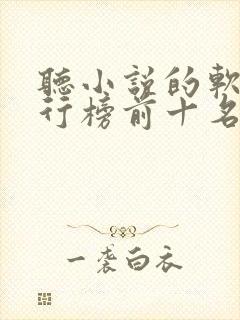 聽小説的軟
行榜前十名
一襲白衣